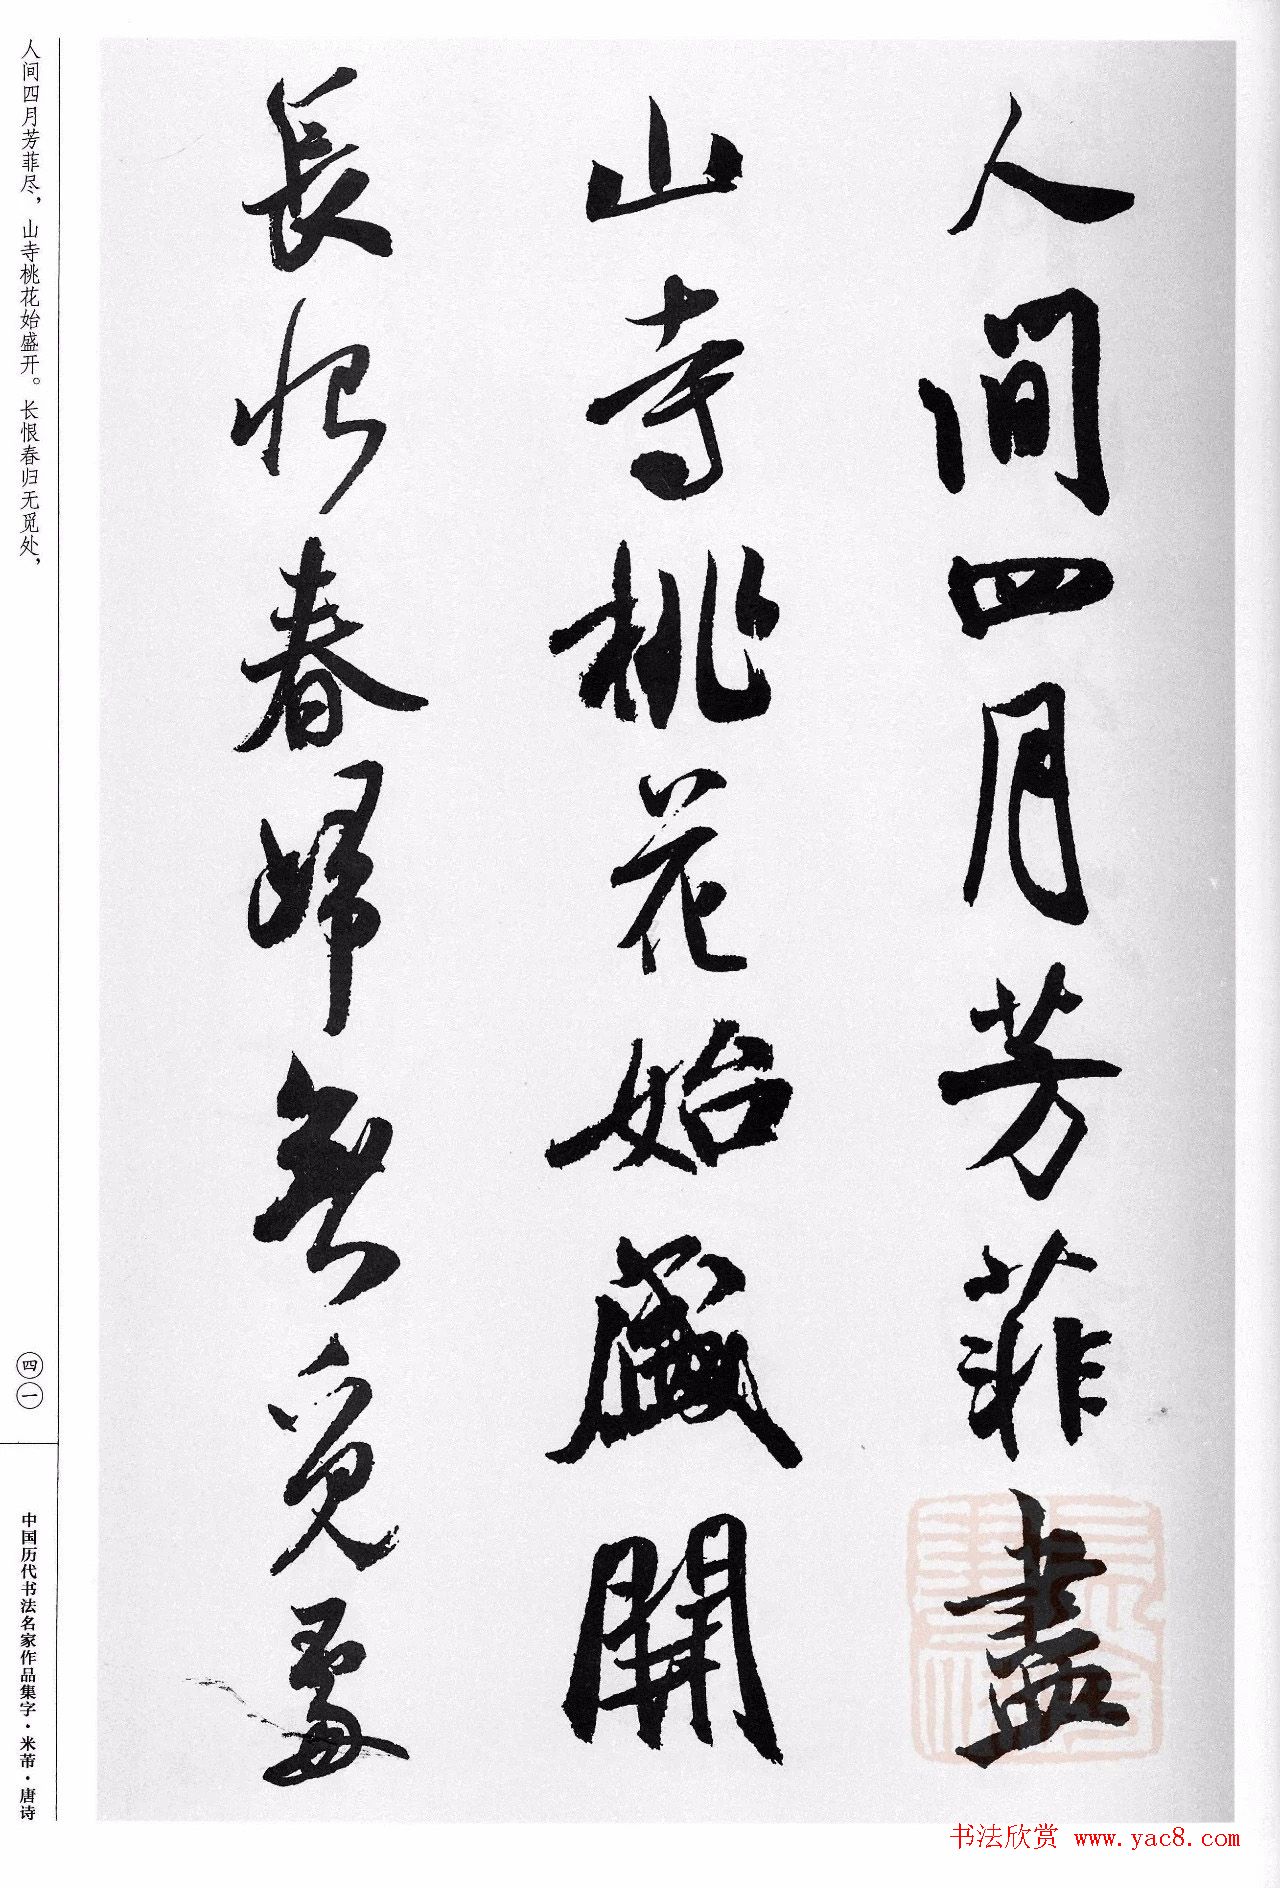 人間四月芳菲盡
山寺桃花始盛開
長恨春歸無覓處
人间四月芳菲尽，山寺桃花始盛开。长恨春归无觅处，
四一
中国历代书法名家作品集字·米芾·唐诗
书法欣赏 www.yac8.com